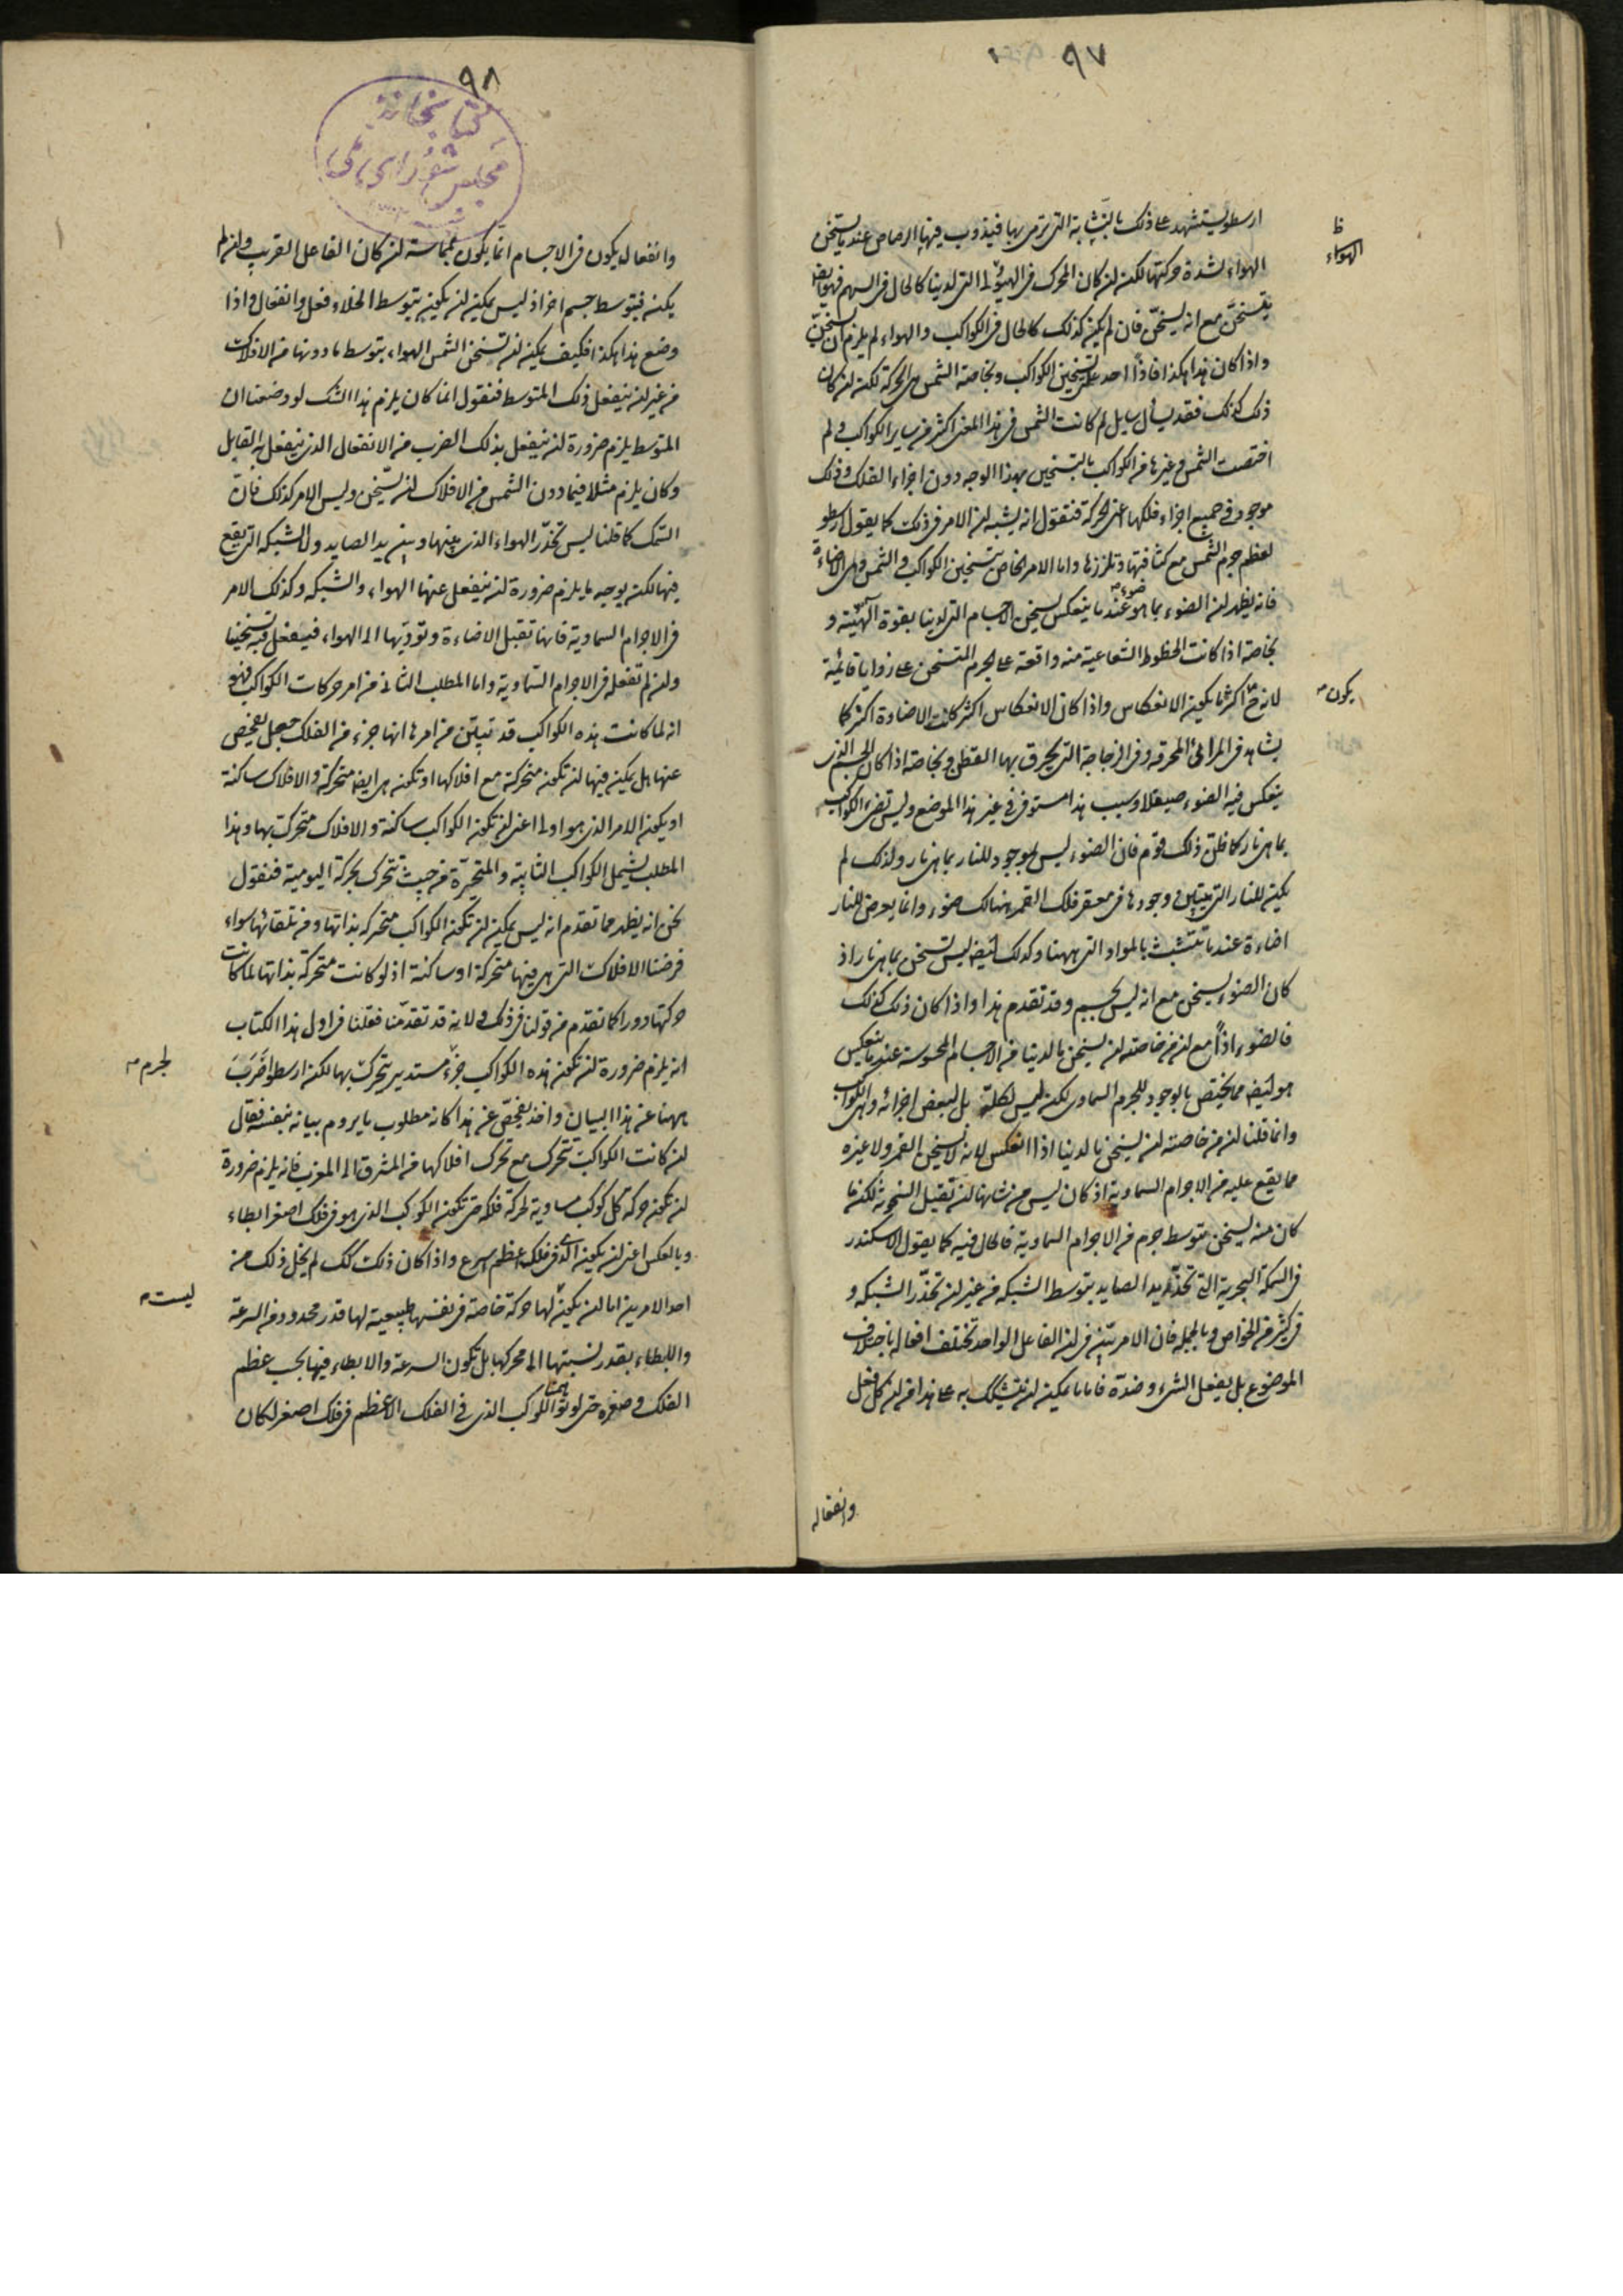 ٩٧
ارسطو يستشهد على ذلك بالنشابة التي ترمى بها فيذوب فيها الرصاص عندما يسخن
الهواء لشدة حركتها لكن ان كان المحرك في الهيولى التي لدينا كالحال في السهم فهو ايضا
يتسخن مع انه يسخن فان لم يكن كذلك كالحال في الكواكب والهواء لم يلزم ان يتسخن
واذا كان هذا هكذا فاذاً احد علل تسخين الكواكب وبخاصة الشمس هي الحركة لكن ان كان
ذلك كذلك فقد يسأل سايل لم كانت الشمس في هذا المعنى اكثر من ساير الكواكب ولم
اختصت الشمس وغيرها من الكواكب بالتسخين بهذا الوجه دون اجزاء الفلك وذلك
موجود في جميع اجزاء فلكها اعني الحركة فنقول انه يشبه ان الامر في ذلك كما يقول ارسطو
لعظم جرم الشمس مع كثافتها وتلززها واما الامر الخاص بتسخين الكواكب والشمس وهي الاضاءة
فانه يظهر ان الضوء بما هو ضوء عندما ينعكس يسخن الاجسام التي لدينا بقوة آلهية و
بخاصة اذا كانت الخطوط الشعاعية منه واقعة على الجرم المتسخن على زوايا قائمة
لانه ح اكثر ما يكون الانعكاس واذا كان الانعكاس اكثر كانت الاضاءة اكثر كما
يشاهد في المرائي المحرقة وفي الزجاجة التي يحرق بها القطن وبخاصة اذا كان الجسم الذي
ينعكس فيه الضوء صيقلا وسبب هذا مستوفى في غير هذا الموضع وليس تضيء الكواكب
بما هي نار كما ظن ذلك قوم فان الضوء ليس بموجود للنار بما هي نار ولذلك لم
يكن للنار التي يتبين وجودها في مقعر فلك القمر هنالك ضوء وانما يعرض للنار
اضاءة عندما تتشبث بالمواد التي ههنا وكذلك ايضا ليس تسخن بما هي نار اذ
كان الضوء يسخن مع انه ليس بجسم وقد تقدم هذا واذا كان ذلك كذلك
فالضوء اذاً مع ان من خاصته ان يسخن ما لدينا من الاجسام المحسوسة عندما ينعكس
هو ايضا مما يختص بالوجود للجرم السماوي لكن ليس لكله بل لبعض اجزائه وهي الكواكب
وانما قلنا ان من خاصته ان يسخن ما لدينا اذا انعكس لانه لا يسخن القمر ولا غيره
مما يقع عليه من الاجرام السماوية اذ كان ليس من شانها ان تقبل السخونة لكن ما
كان منه يسخن بتوسط جرم من الاجرام السماوية فالحال فيه كما يقول الاسكندر
في السمكة البحرية التي تخدر يد الصايد بتوسط الشبكة من غير ان تخدر الشبكة و
في كثير من الخواص وبالجملة فان الامر بين في ان الفاعل الواحد تختلف افعاله باختلاف
الموضوع بل يفعل الشيء وضده فاما ما يمكن ان يتشكك به على هذا من ان كل فعل
وانفعاله
ظ
الهواء
يكون
٩٨
كتابخانه
مجلس شورای ملی
وانفعاله يكون في الاجسام انما يكون بمماسة ان كان الفاعل القريب وان لم
يكن فبتوسط جسم اخر اذ ليس يمكن ان يكون بتوسط الخلاء فعل وانفعال واذا
وضع هذا هكذا فكيف يمكن ان تسخن الشمس الهواء بتوسط ما دونها من الافلاك
من غير ان ينفعل ذلك المتوسط فنقول انما كان يلزم هذا الشك لو وضعنا ان
المتوسط يلزم ضرورة ان ينفعل بذلك الضرب من الانفعال الذي ينفعل به القابل
وكان يلزم مثلا فيما دون الشمس من الافلاك ان يسخن وليس الامر كذلك فان
السمك كما قلنا ليس تخدر الهواء الذي بينها وبين يد الصايد ولا الشبكة التي يقع
فيها لكن بوجه ما يلزم ضرورة ان ينفعل عنها الهواء والشبكة وكذلك الامر
في الاجرام السماوية فانها تقبل الاضاءة وتؤديها الى الهواء فيفعل فيه تسخينا
وان لم تفعله في الاجرام السماوية واما المطلب الثاني من امر حركات الكواكب فهو
انه لما كانت هذه الكواكب قد تبين من امرها انها جزء من الفلك جعل يفحص
عنها هل يمكن فيها ان تكون متحركة مع افلاكها او تكون هي ايضا متحركة والافلاك ساكنة
او يكون الامر الذي هو اولى اعني ان تكون الكواكب ساكنة والافلاك متحركة بها وهذا
المطلب يشمل الكواكب الثابتة والمتحيرة من حيث تتحرك بحركة اليومية فنقول
نحن انه يظهر مما تقدم انه ليس يمكن ان تكون الكواكب متحركه بذاتها ومن تلقائها سواء
فرضنا الافلاك التي هي فيها متحركة او ساكنة اذ لو كانت متحركة بذاتها لما كانت
حركتها دورا كما تقدم من قولنا في ذلك ولانه قد تقدمنا فقلنا في اول هذا الكتاب
انه يلزم ضرورة ان تكون هذه الكواكب جزء مستدير يتحرك بها لكن ارسطو اضرب
ههنا عن هذا البيان واخذ يفحص عن هذا كانه مطلوب ما يروم بيانه بنفسه فقال
ان كانت الكواكب تتحرك مع تحرك افلاكها من المشرق الى المغرب فانه يلزم ضرورة
ان تكون حركة كل كوكب مساوية لحركة فلكه حتى تكون الكوكب الذي هو في فلك اصغر ابطاء
وبالعكس اعني ان يكون الذي في فلك اعظم اسرع واذا كان ذلك كك لم يخل ذلك من
احد الامرين اما ان يكون لها حركة خاصة في نفسها طبيعية لها قدر محدود من السرعة
والابطاء بقدر نسبتها الى محركها بل تكون السرعة والابطاء فيها بحسب عظم
الفلك وصغره حتى لو توهمنا الكوكب الذي في الفلك الاعظم في فلك اصغر لكان
لجرم
ليست